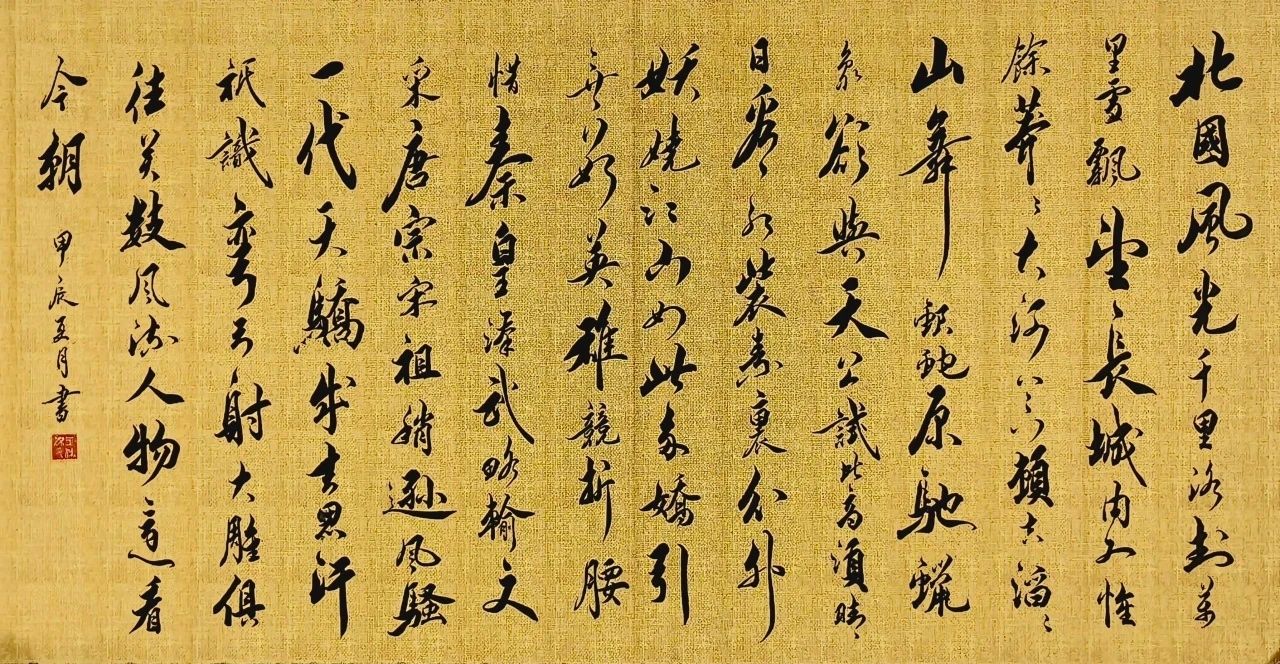 北國風光千里冰封萬
里雪飄望長城内外惟
餘莽〻大河上下頓失滔〻
山舞銀蛇原馳蠟
象欲與天公試比高須晴
日看紅裝素裹分外
妖嬈江山如此多嬌引
無數英雄競折腰
惜秦皇漢武略輸文
采唐宗宋祖稍遜風騷
一代天驕成吉思汗
衹識彎弓射大雕俱
往矣數風流人物還看
今朝 甲辰夏月書